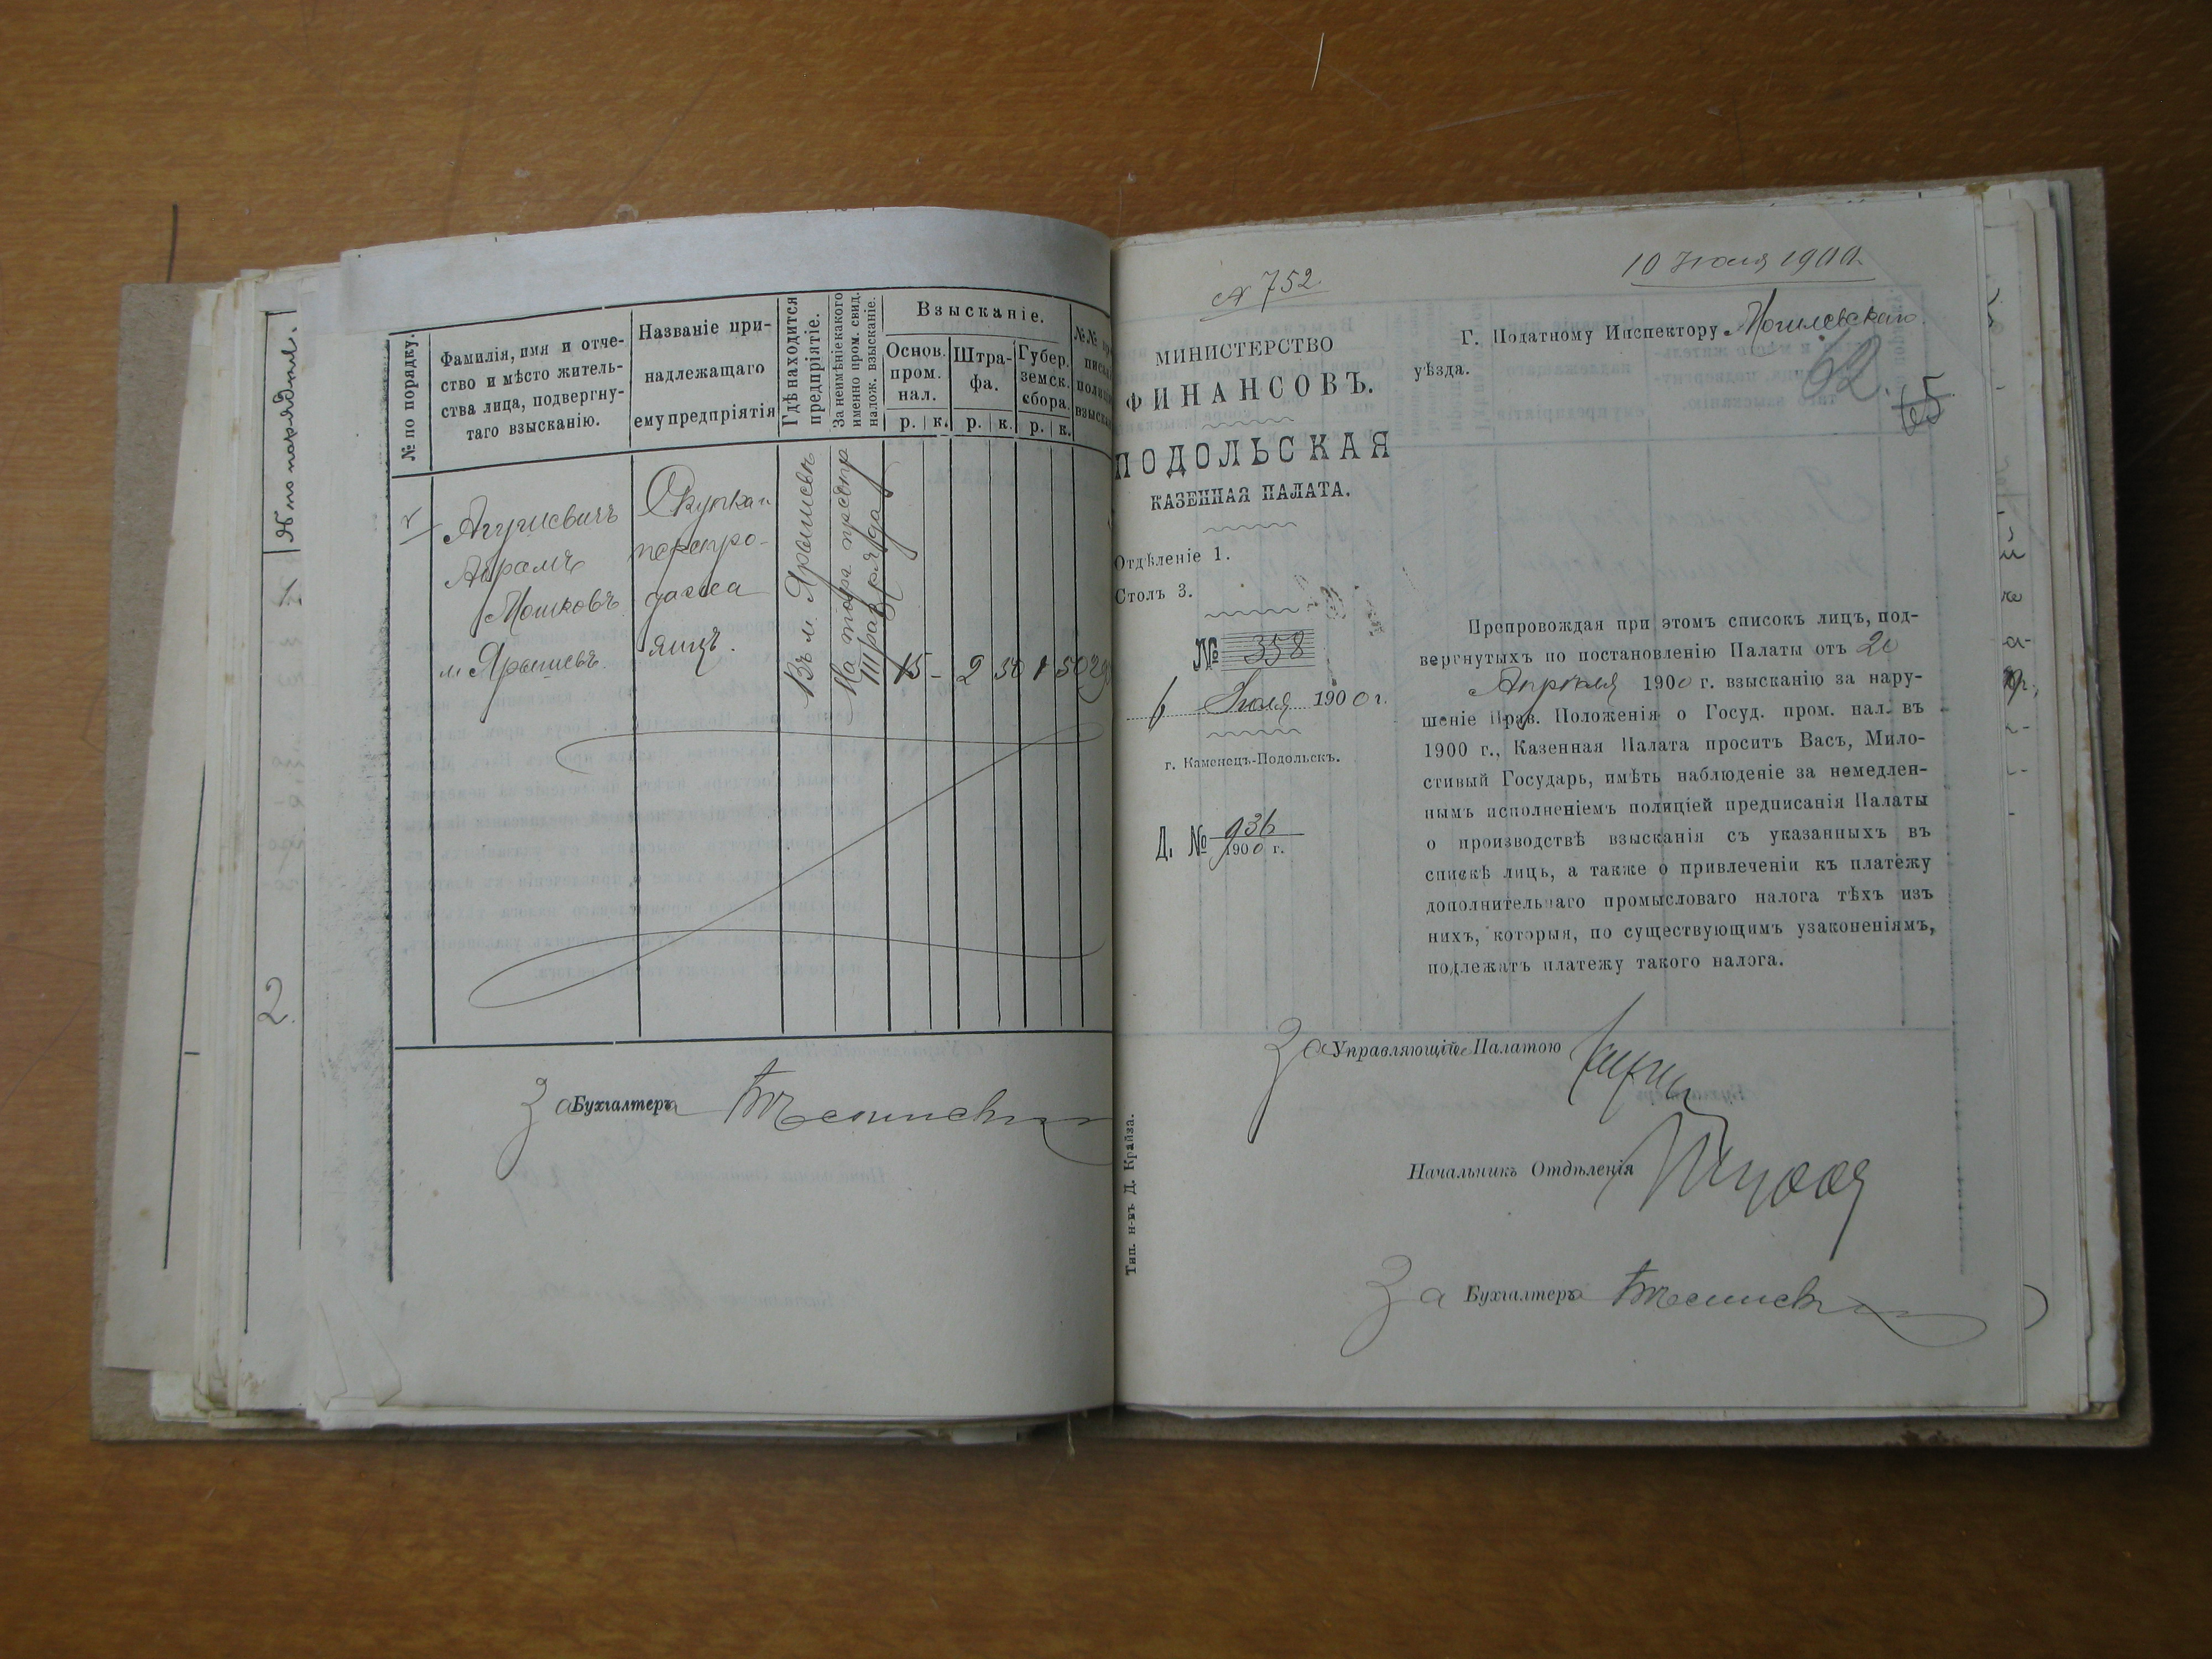 № по порядкл.
2.
№ по порядку.
Фамилія, имя и отче-
ство и мѣсто житель-
ства лица, подвергну-
таго взысканію.
Названіе при-
надлежащаго
ему предпріятія
Гдѣ находится
предпріятіе.
За неимѣніе какого
именно пром. свид.
налож. взысканіе.
Взысканіе.
Основ.
пром.
нал.
Штра-
фа.
Губер.
земск.
сбора.
р. к. р. к. р. к.
Абрамъ
Мошковъ
м. Ярышевъ.
Скупка и
перепро-
дажа
яицъ.
Въ м. Ярышевѣ
III разряда
15 - 2 50 1 50
За Бухгалтера
№ 752.
10 Июля 1900.
МИНИСТЕРСТВО
ФИНАНСОВЪ.
ПОДОЛЬСКАЯ
КАЗЕННАЯ ПАЛАТА.
Отдѣленіе 1.
Столъ 3.
№ 358
6 Июля 1900 г.
г. Каменецъ-Подольскъ.
Д. № 936
1900 г.
Г. Податному Инспектору Могилевскаго
уѣзда.
62.
65
Препровождая при этомъ списокъ лицъ, под-
вергнутыхъ по постановленію Палаты отъ 20
Апрѣля 1900 г. взысканію за нару-
шеніе Прав. Положенія о Госуд. пром. нал. въ
1900 г., Казенная Палата проситъ Васъ, Мило-
стивый Государь, имѣть наблюденіе за немедлен-
нымъ исполненіемъ полиціей предписанія Палаты
о производствѣ взысканія съ указанныхъ въ
спискѣ лицъ, а также о привлеченіи къ платежу
дополнительнаго промысловаго налога тѣхъ изъ
нихъ, которыя, по существующимъ узаконеніямъ,
подлежатъ платежу такого налога.
За Управляющій Палатою
Начальникъ Отдѣленія
За Бухгалтера
Тип. н-въ Д. Крайза.